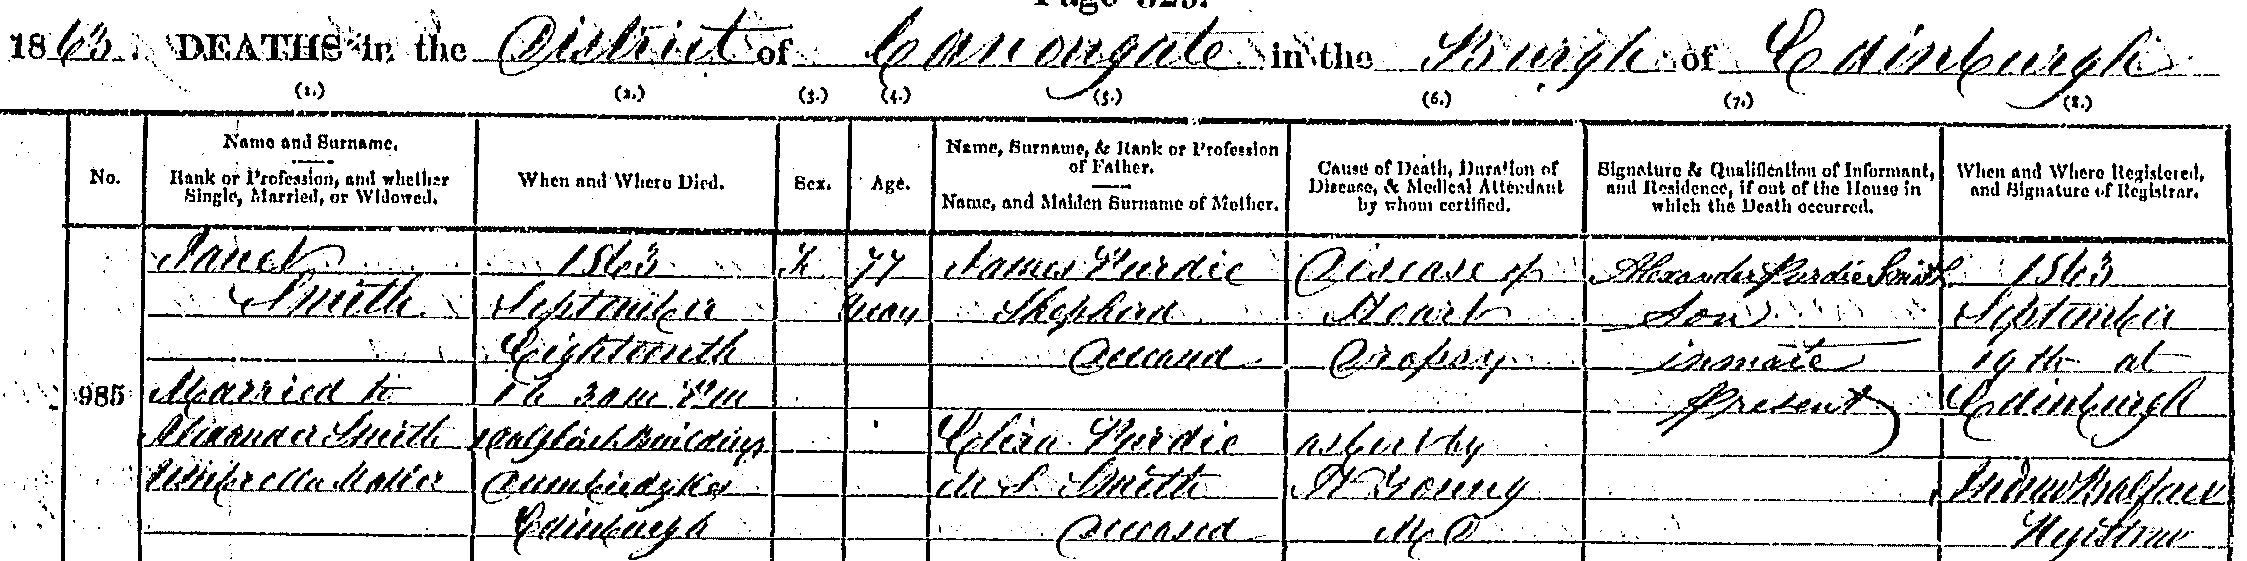 Page 329.
1863. DEATHS in the District of Canongate in the Burgh of Edinburgh
(1.) (2.) (3.) (4.) (5.) (6.) (7.) (8.)
No.
Name and Surname.
Rank or Profession, and whether
Single, Married, or Widowed.
When and Where Died.
Sex.
Age.
Name, Surname, & Rank or Profession
of Father.
Name, and Maiden Surname of Mother.
Cause of Death, Duration of
Disease, & Medical Attendant
by whom certified.
Signature & Qualification of Informant,
and Residence, if out of the House in
which the Death occurred.
When and Where Registered,
and Signature of Registrar.
985
Janet
Smith
Married to
Alexander Smith
Umbrella Maker
1863
September
Eighteenth
1h 30m PM
Buildings
Dumbiedykes
Edinburgh
F
77
years
James Purdie
Shepherd
Deceased
Eliza Purdie
M S Smith
Deceased
Disease of
Heart
Dropsy
as cert by
Young
M D
Alexander Purdie Smith
Son
inmate
Present
1863
September
19th at
Edinburgh
Andrew Balfour
Registrar